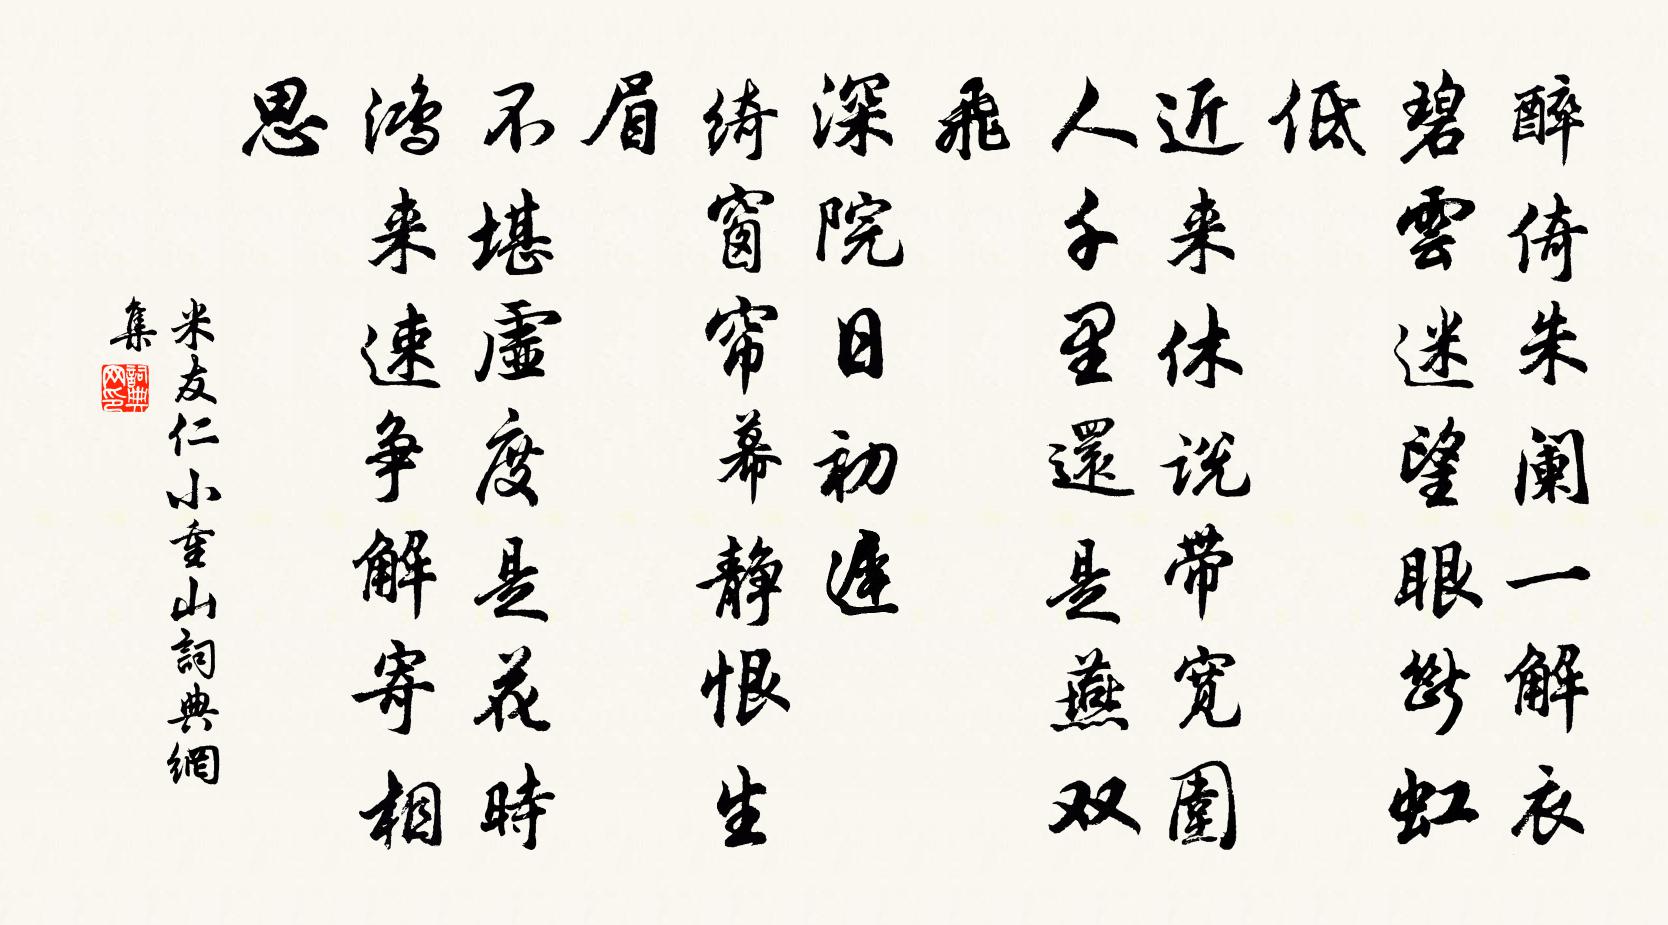 醉倚朱阑一解衣
碧雲迷望眼断虹
低
近来休说带寛圍
人千里還是燕双
飛
深院日初遲
绮窗帘幕静恨生
眉
不堪虚度是花時
鸿来速争解寄相
思
米友仁小重山詞典網
集
詞典網印